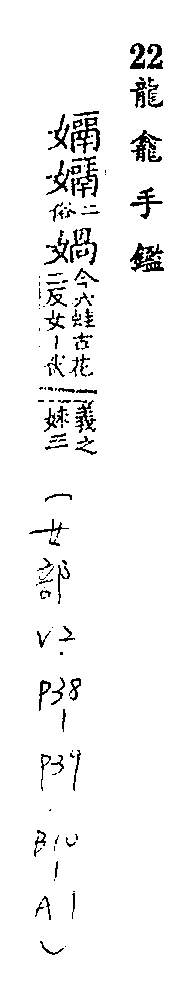 22 龍龕手鑑
二俗
媧
今六蛙古花
二反女｜伏
羲之
妹三
(女部 V2. P38-P39. B10-A1)